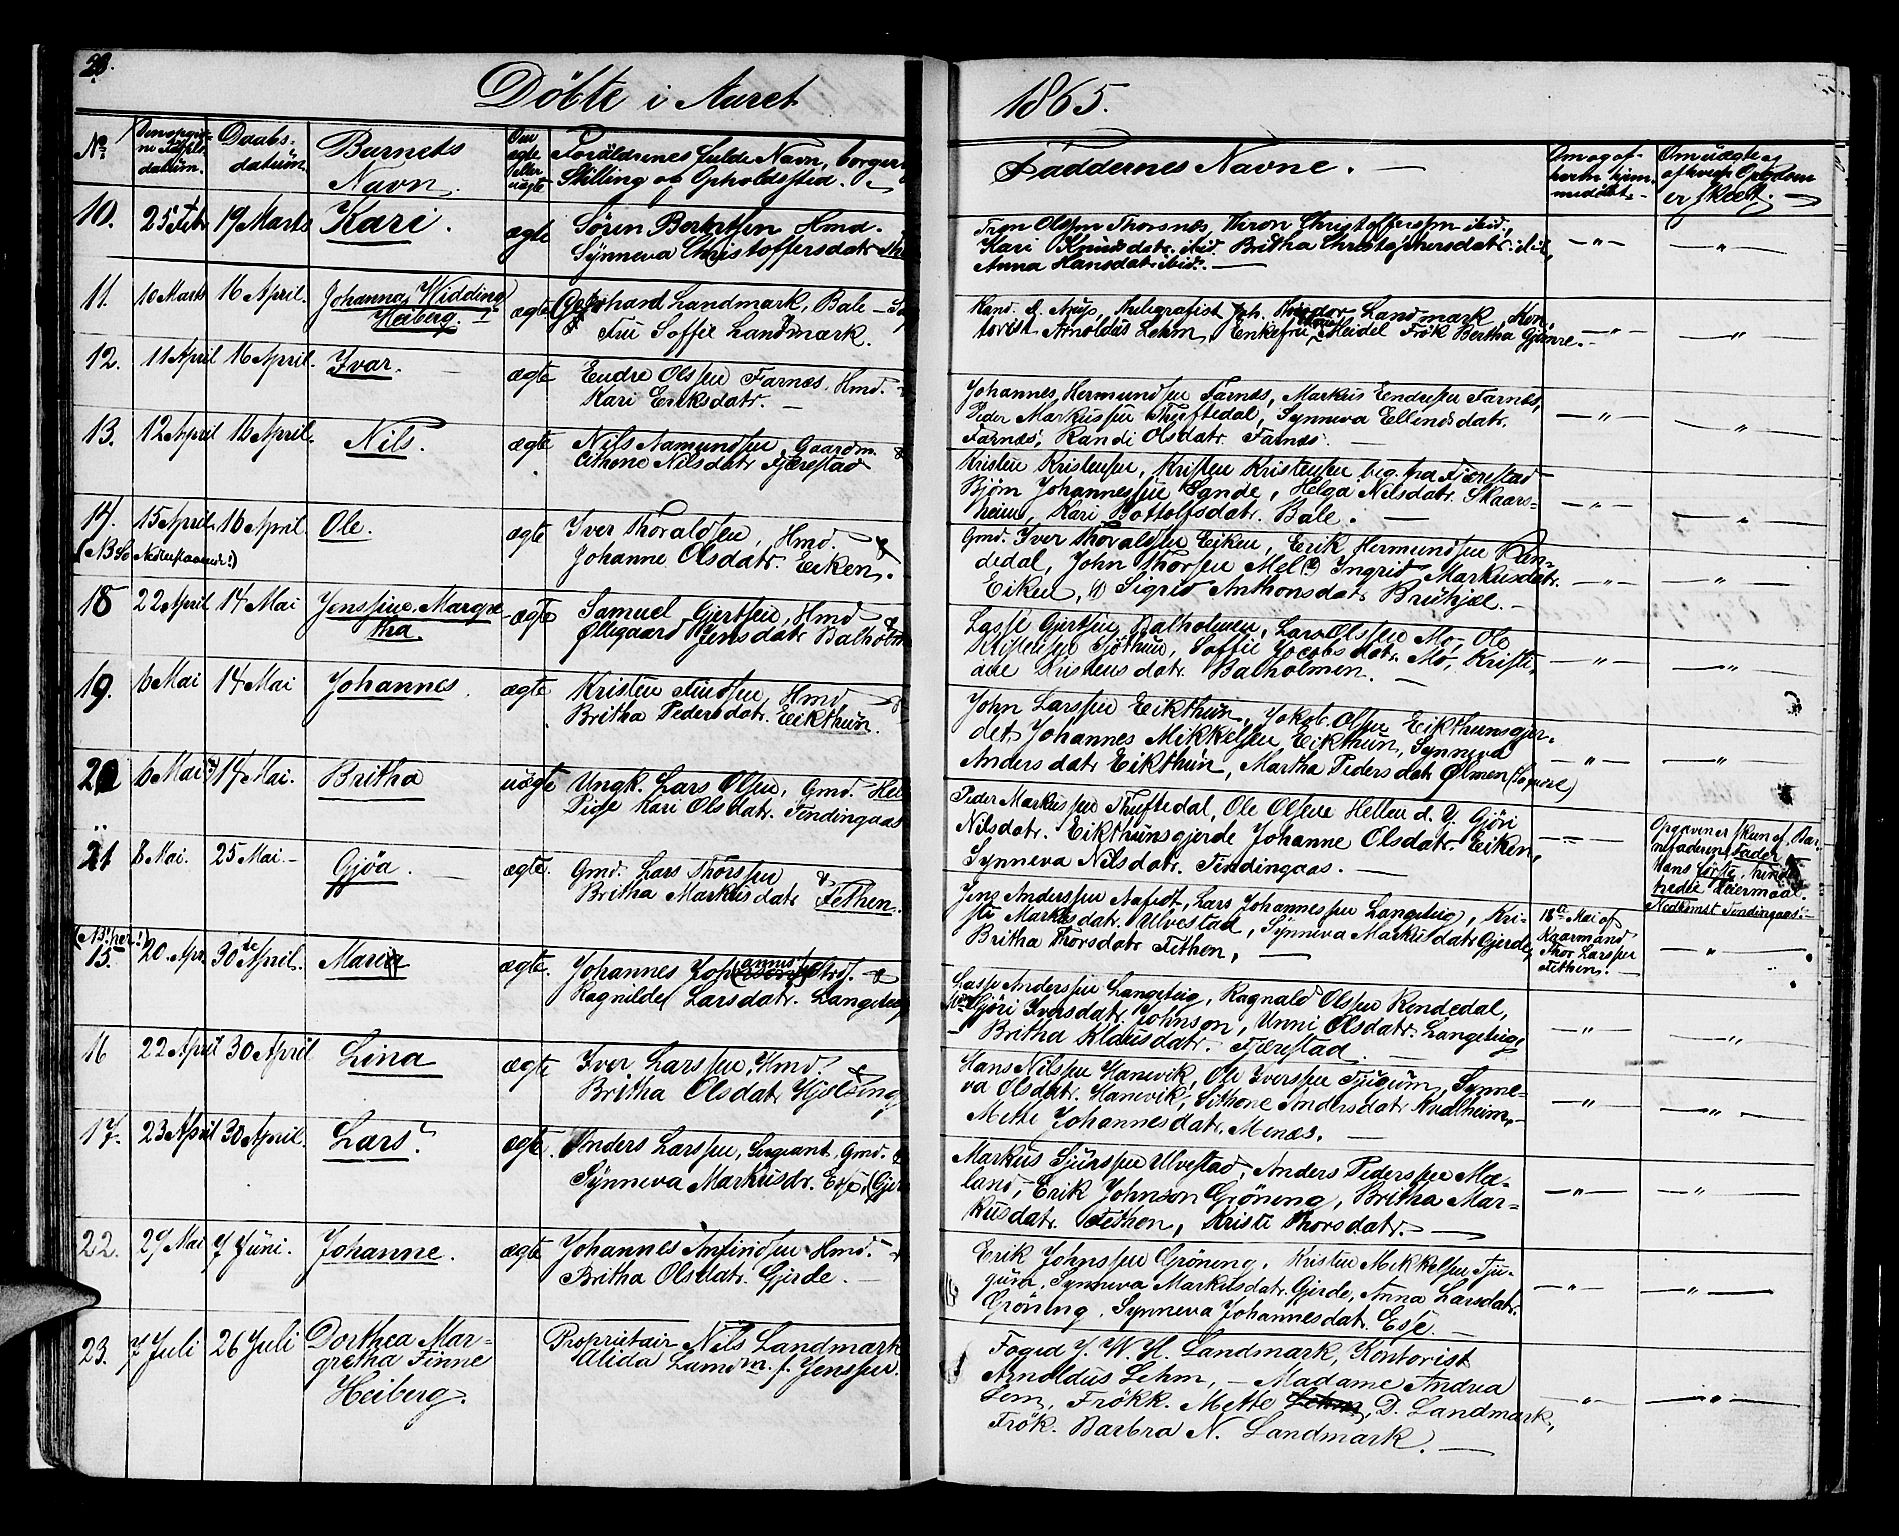 28.
Döbte i Aaret
1865.
No.
Daabs-
datum.
Barnets
Navn.
Om
ægte
eller
uægte
Forældrenes fulde Navn, borger
Stilling og Opholdssted.
Faddernes Navne.
10. 25 Febr 19 Marts Kari. ægte Sören Hmd.
Synneva Christoffersdatr.
Olsen Thorsnes, Christoffersen ibid.,
Kari Knudsdatr. ibid. Britha Christophersdatr. ibid,
Anna Hansdatr ibid.
11. 10 Marts 16 April. Johanna Widding
Heiberg. ægte Gerhard Landmark, Bale
Fru Soffie Landmark.
Telegrafist Joh. Theodor Landmark, Kon-
torist Arnoldus Lehm, Enkefru Heidel Frök Bertha
12. 11 April 16 April. Ivar. ægte Endre Olssen Farnæs. Hmd.
Kari Eriksdatr.
Johannes Hermundsen Farnæs, Markus Eendresen Farnæs,
Peder Markussen Thyftedal, Synneva Ellendsdatr.
Farnæs, Randi Olsdatr. Farnæs.
13. 12 April 16 April. Nils. ægte Nils Aamundsen, Gaardm.
Cithone Nilsdatr Fjærestad
Kristen Kristensen, Kristen Kristensen beg. fra Fjærestad
Bjørn Johannessen Sande, Helga Nilsdatr. Skaars-
heim, Kari Bottolfsdatr. Bale.
14. 15 April 16 April. Ole. ægte Iver Thoraldsen, Hmd. &
Johanne Olsdatr. Eiken.
(NB
Gmd. Iver Thoraldsen Eiken, Erik Hermundsen Ren-
dedal, John Thorsen Mel Ingrid Markusdatr.
Eiken, Sigrid Anthonsdatr
18 22 April 14 Mai Jenssine Margre-
tha ægte Samuel Gjertsen, Hmd &
Øllegaard Jensdatr Balholm
Lasse Gjertsen Balholmen, Lars Olssen Mo, Ole
Soffie Jacobsdatr. Mo, Kristi-
ane Kristensdatr. Balholmen.
19. 6 Mai 14 Mai Johannes. ægte Kristen Findsen, Hmd
Britha Pedersdatr. Eikthun.
John Larssen Eikthun, Jokob Olsen Eikthunsgjer-
det Johannes Mikkelsen Eikthun, Synneva
Andersdatr Eikthun, Martha Pedersdatr Ølmen
20 6 Mai 14 Mai. Britha uægte Ungk. Lars Olsen, Gmd.
Pige Kari Olsdatr. Tendingaas
Peder Markussen Thyftedal, Ole Olsen Hellen d. y. Gjöri
Nilsdatr. Eikthunsgjerde Johanne Olsdatr. Eiken,
Synneva Nilsdatr. Tendingaas.
21 8 Mai. 25 Mai Gjöa. ægte. Gmd. Lars Thorssen &
Britha Markusdatr Fethen.
Jens Anderssen Aafedt, Lars Johannessen Langeteig, Kri-
sti Markusdatr. Ulvestad, Synneva Markusdatr Gjerde,
Britha Thorsdatr Fethen,
18de Mai af
Kaarmand
Thor Larssen
Fethen.
(NB! her!)
15. 20 Apr. 30de April. Maria ægte. Johannes &
Ragnilde Larsdatr. Langeteig
Lasse Anderssen Langeteig, Ragnald Olssen Rendedal,
Gjöri Iversdatr Johnson, Unni Olsdatr. Langeteig
Britha Klausdatr. Fjærestad.
16 22 April 30 April Lina ægte Iver Larssen, Hmd. &
Britha Olsdatr
Hans Nilssen Hanevik, Ole Iverssen Tjugum, Synne-
va Olsdatr. Hanevik, Sithone Andersdatr Kvalheim,
Mette Johannesdatr. Menæs.
17. 23 April 30 April. Lars. ægte. Anders Larssen, Sergeant, Gmd.
Synneva Markusdr. Esse
Markus Sjurssen Ulvestad, Anders Pederssen Mæ-
land, Erik Johnson Gröning, Britha Mar-
kusdatr. Fethen, Kristi Thorsdatr.
22. 29 Mai 7 Juni. Johanne. ægte Johannes Anfindsen Hmd.
Britha Olsdatr. Gjerde.
Erik Johnssen Gröning, Kristen Mikkelsen Tju-
gum, Synneva Markusdatr. Gjerde, Anna Larsdatr.
Gröning, Synneva Johannesdatr. Esse
23. 7 Juli 26 Juli Dorthea Mar-
gretha Finne
Heiberg. Proprietair Nils Landmark
Alida Landm. f. Jenssen.
Foged J. W. H. Landmark, Kontorist
Arnoldus Lehm, Madame Andrea
Lem, Frökk. Mette D. Landmark,
Frök. Barbra N. Landmark.